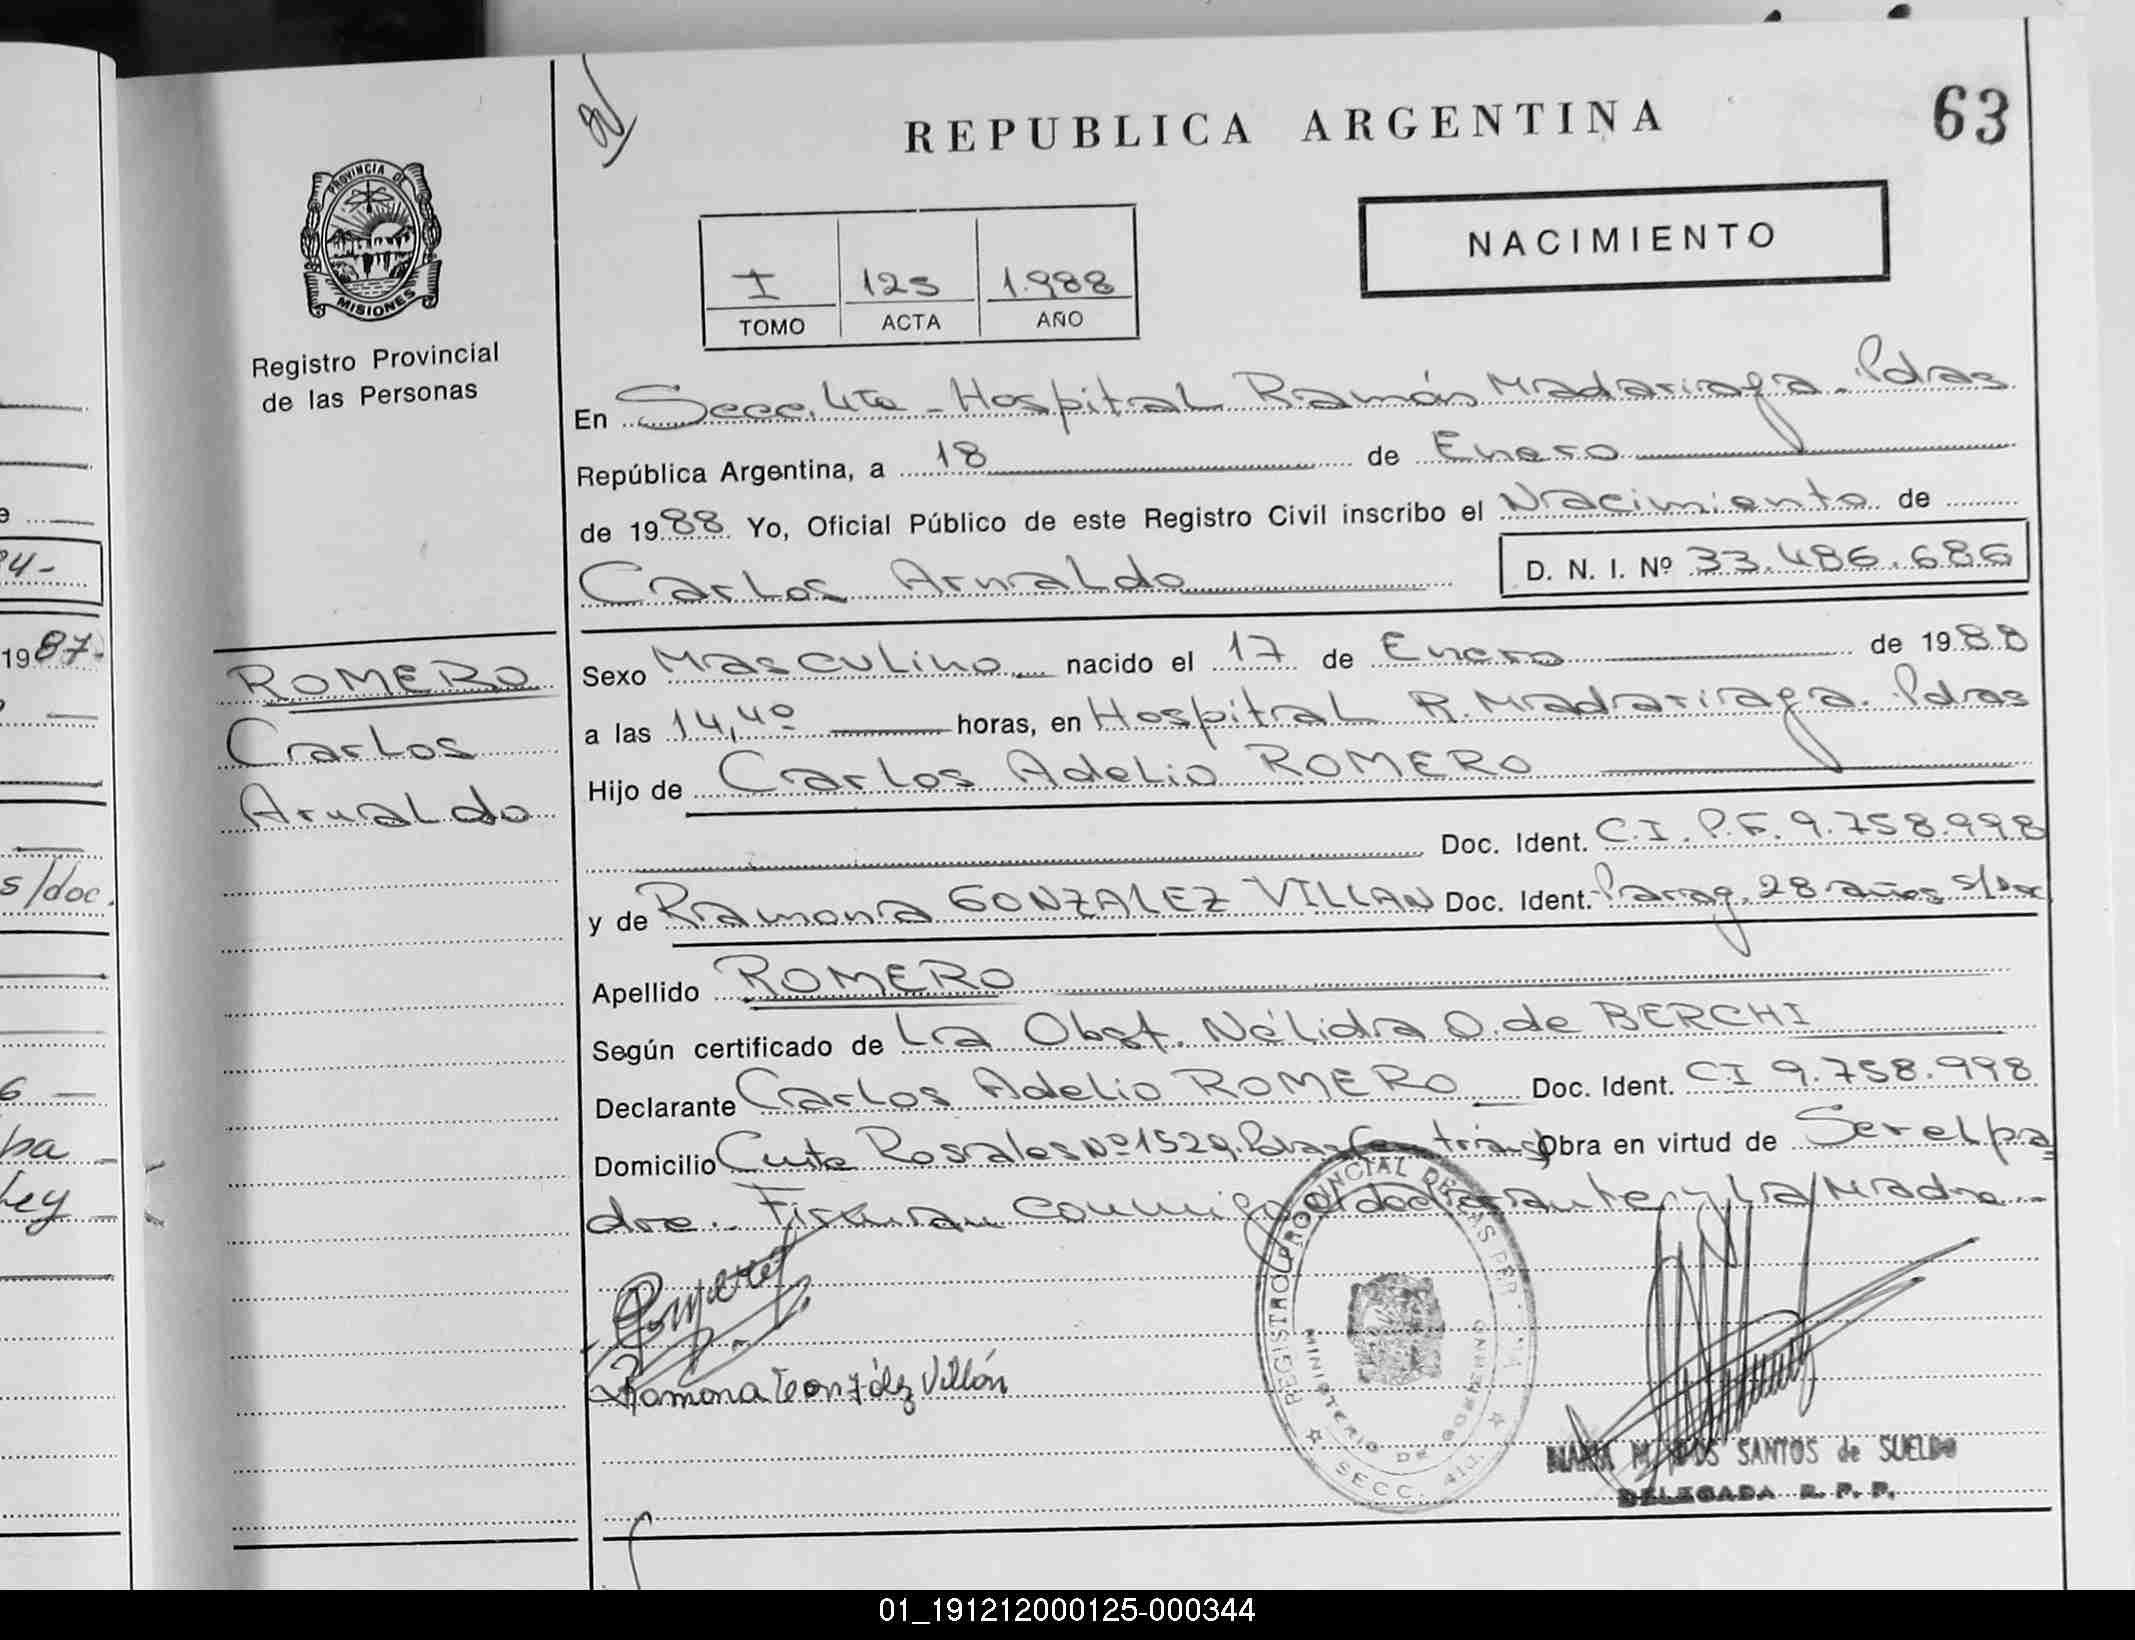 63
REPUBLICA ARGENTINA
NACIMIENTO
I 125 1.988
TOMO ACTA AÑO
PROVINCIA DE
MISIONES
Registro Provincial
de las Personas
En Secc. 4ta - Hospital Ramón Madariaga - Pdas
República Argentina, a 18 de Enero
de 1988 Yo, Oficial Público de este Registro Civil inscribo el Nacimiento de
Carlos Arnaldo D. N. I. Nº 33.486.686
ROMERO
Carlos
Arnaldo
Sexo Masculino nacido el 17 de Enero de 1988
a las 14,40 horas, en Hospital R. Madariaga. Pdas
Hijo de Carlos Adelio ROMERO
Doc. Ident. C.I. P.F. 9.758.998
y de Ramona GONZALEZ VILLAN Doc. Ident. Parag. 28 años s/Doc
Apellido ROMERO
Según certificado de La Obst. Nélida O. de BERCHI
Declarante Carlos Adelio ROMERO Doc. Ident. CI 9.758.998
Domicilio Cnte Rosales Nº 1529. Pdas Obra en virtud de Ser el pa
dre.- Firman conmigo el declarante y La Madre.-
Ramona GonzálEz Villón
REGISTRO PROVINCIAL DE LAS PER
MINISTERIO DE GOBIERNO
SECC. 4TA
MARIA M. DOS SANTOS de SUELDO
DELEGADA R. P. P.
84-
1987-
s/doc.
6
ba
Ley
01_191212000125-000344